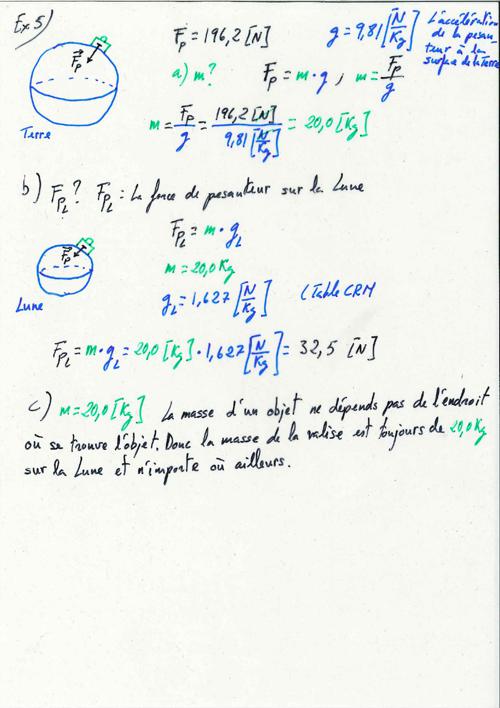 Ex 5)
Fp = 196,2 [N]
g = 9,81 [N/Kg]
L'accélération
de la pesan
teur à la
surface de la Terre
Fp
Terre
a) m?
Fp = m·g ; m = Fp/g
m = Fp/g = 196,2 [N] / 9,81 [N/Kg] = 20,0 [Kg]
b) FpL ? FpL : La force de pesanteur sur la Lune
Fp
Lune
FpL = m·gL
m = 20,0 Kg
gL = 1,627 [N/Kg] (Table CRM
FpL = m·gL = 20,0 [Kg] · 1,627 [N/Kg] = 32,5 [N]
c) m = 20,0 [Kg] La masse d'un objet ne dépends pas de l'endroit
où se trouve l'objet. Donc la masse de la valise est toujours de 20,0 Kg
sur la Lune et n'importe où ailleurs.